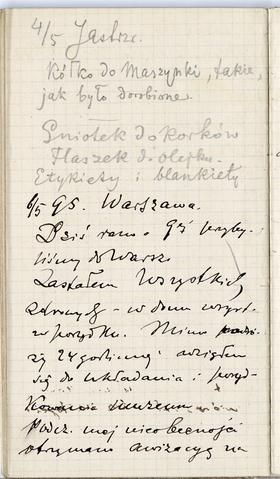 4/5 Jastrz.
Kółko do Maszynki, takie,
jak było dorobione.
Gniotek do korków
Flaszek do olejku.
Etykiety i blankiety
6/5 95. Warszawa.
Dziś rano o 9½ przyby-
liśmy do Warsz.
Zastałem Wszystkich
zdrowych – w domu wszyst-
ko w porządku. Mimo
24 godzinnej wziąłem
się do układania i porząd-
Podcz. mej nieobecności
otrzymano awizacyę na